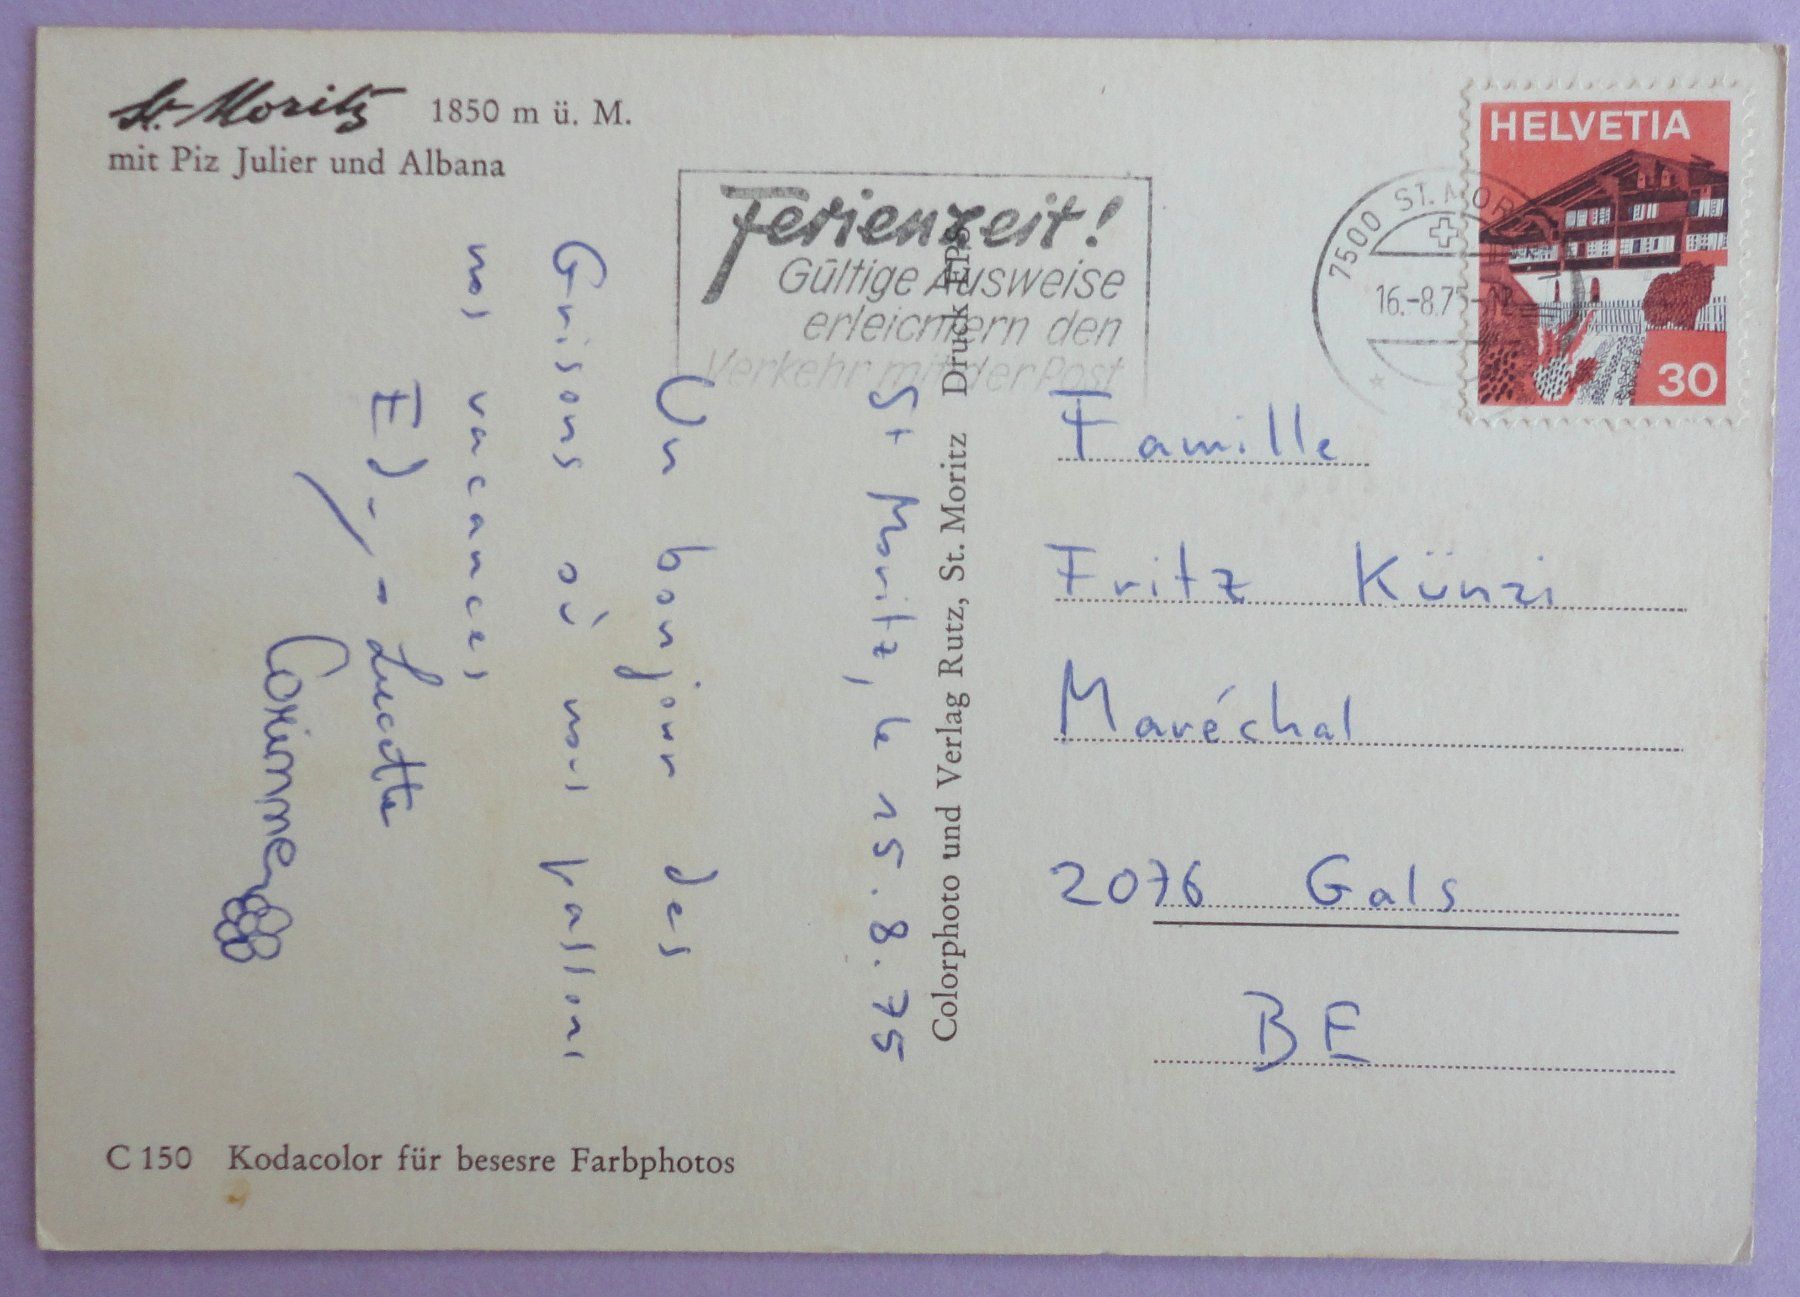 St. Moritz 1850 m ü. M.
mit Piz Julier und Albana
Ferienzeit!
Gültige Ausweise
erleichtern den
Verkehr mit der Post
7500 ST. MOR
16.-8.75-12
HELVETIA
30
St Moritz, le 15.8.75
Un bonjour des
Grisons où nous passons
nos vacances
Lucette
Corinne
Colorphoto und Verlag Rutz, St. Moritz Druck
Famille
Fritz Künzi
Maréchal
2076 Gals
BE
C 150 Kodacolor für besesre Farbphotos